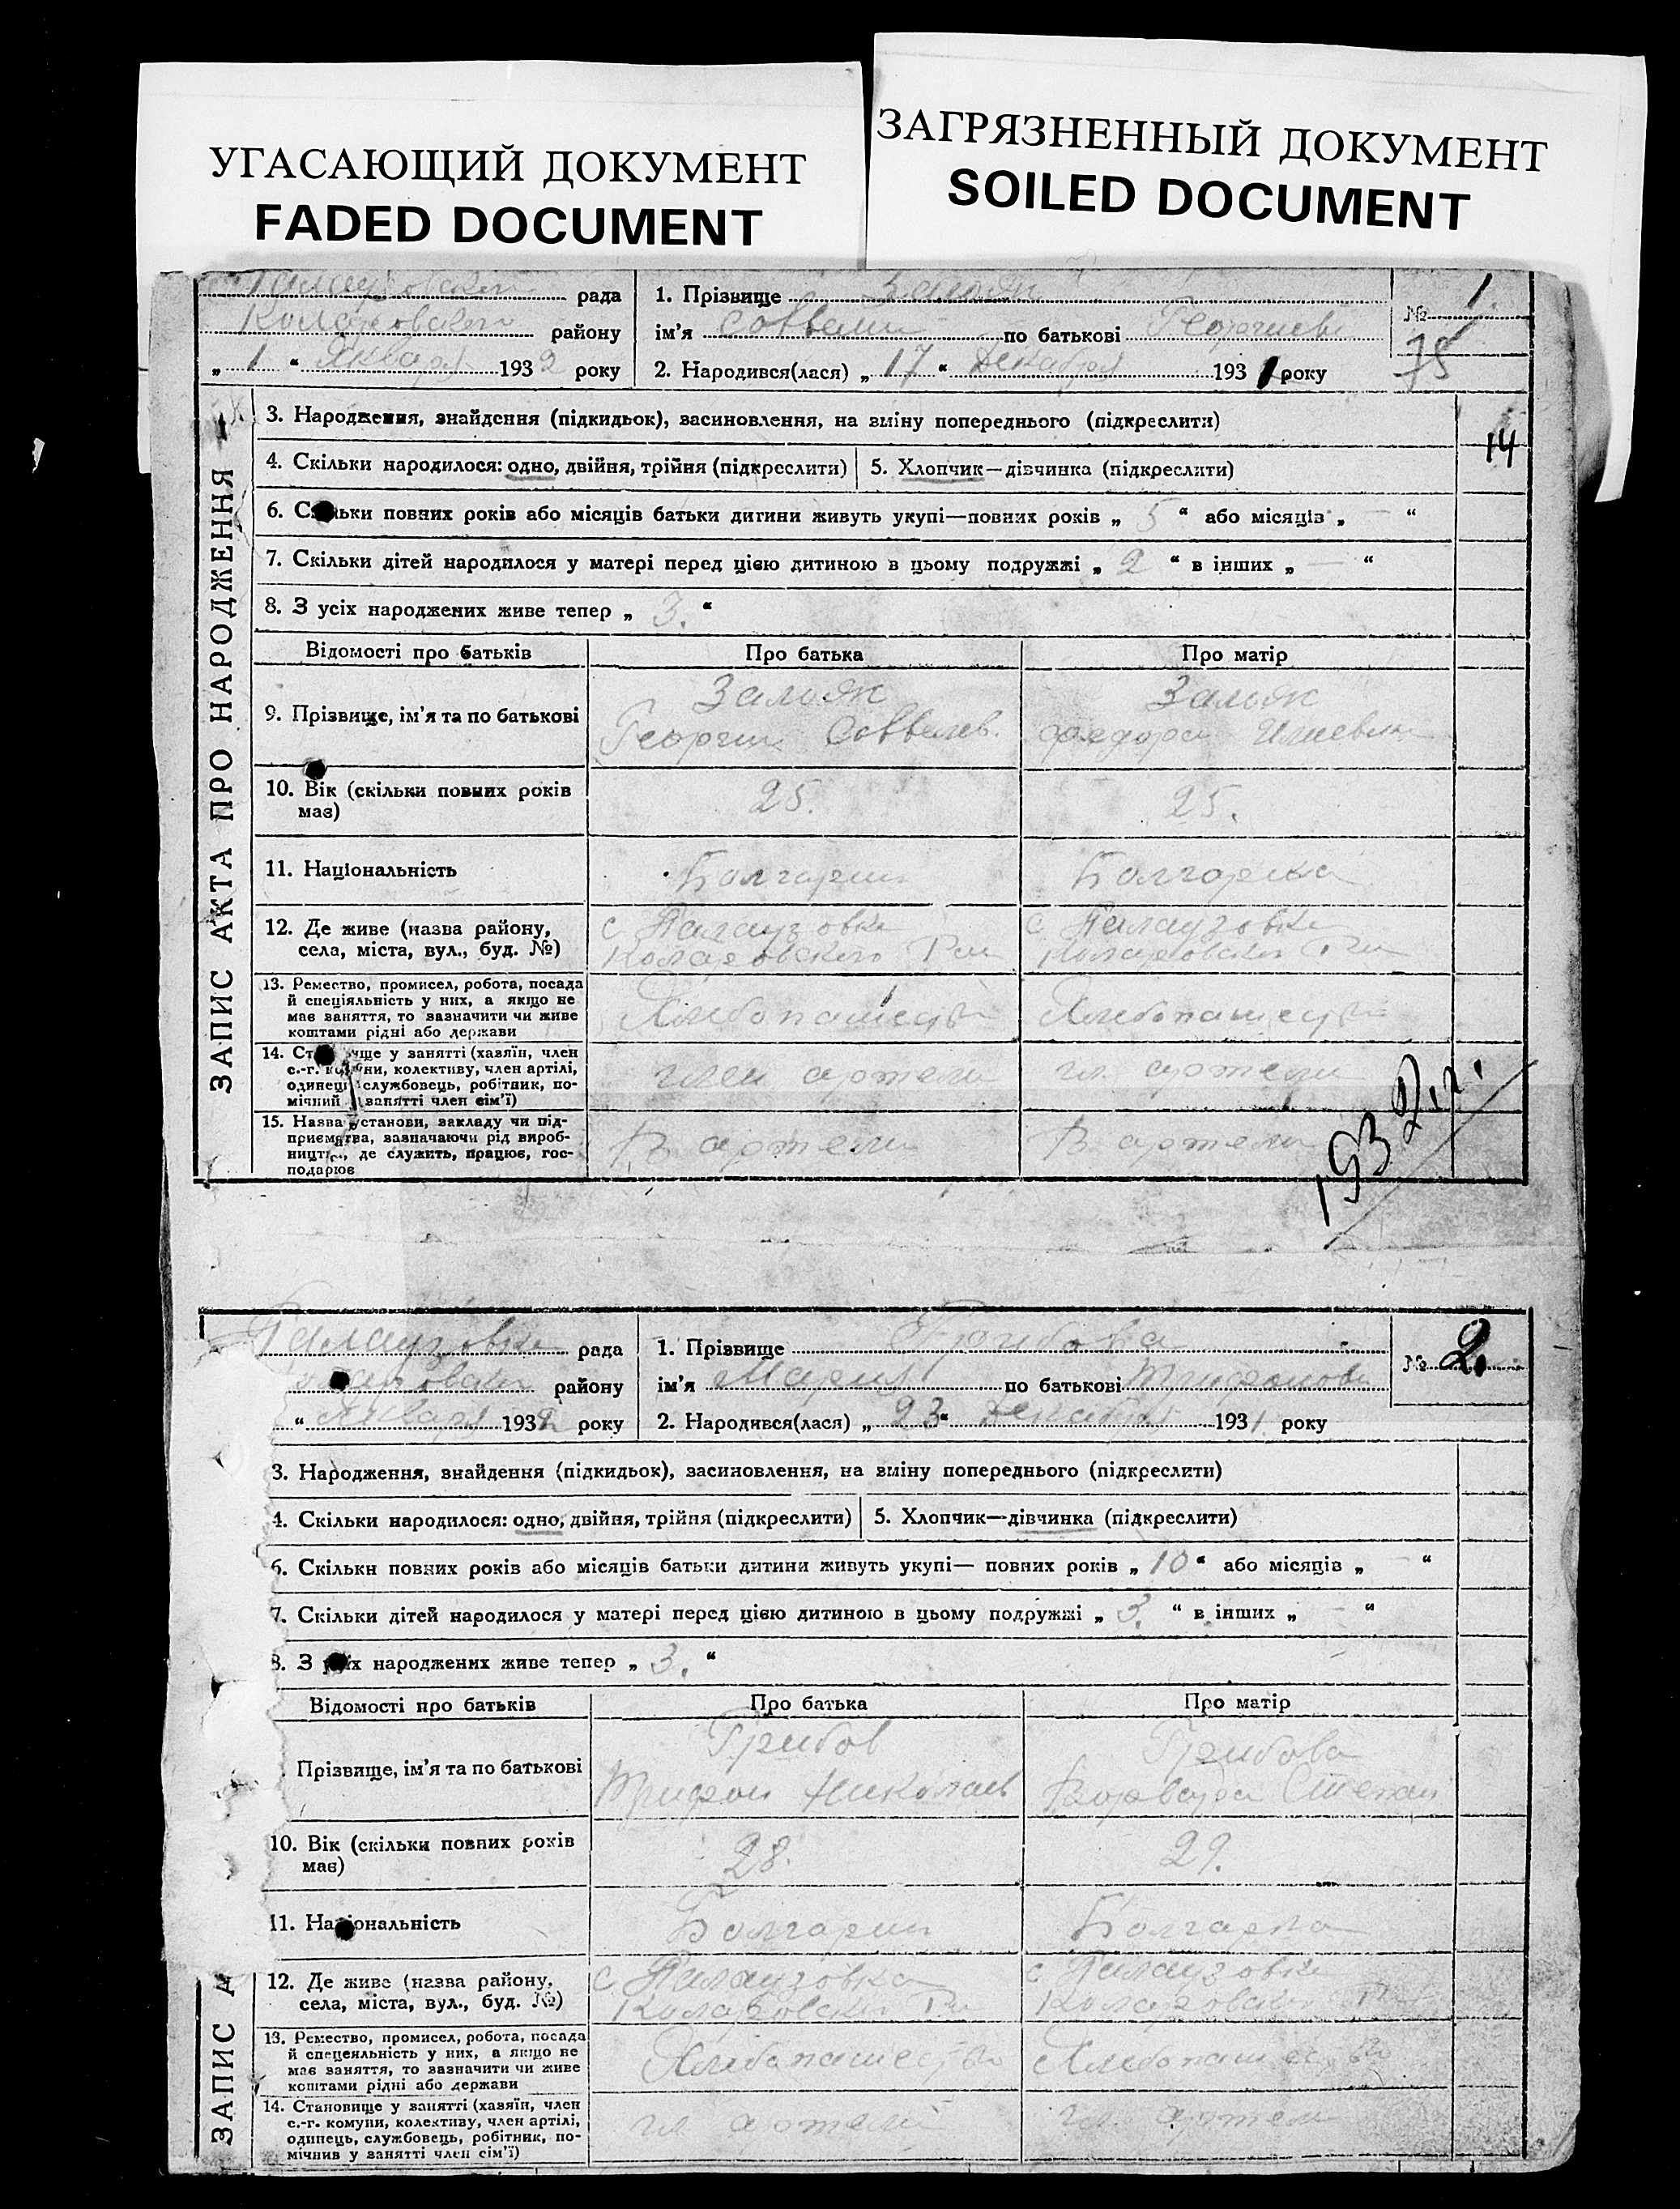 УГАСАЮЩИЙ ДОКУМЕНТ
FADED DOCUMENT
ЗАГРЯЗНЕННЫЙ ДОКУМЕНТ
SOILED DOCUMENT
рада
Коларовского району
„ 1 “ Января 1932 року
1. Прізвище
ім’я по батькові Георгиев
2. Народився(лася) „ 17 “ Декабря 1931 року
№ 1.
75
14
ЗАПИС АКТА ПРО НАРОДЖЕННЯ
3. Народження, знайдення (підкидьок), засиновлення, на зміну попереднього (підкреслити)
4. Скільки народилося: одно, двійня, трійня (підкреслити)
5. Хлопчик—дівчинка (підкреслити)
6. Скільки повних років або місяців батьки дитини живуть укупі—повних років „ 5 “ або місяців „ — “
7. Скільки дітей народилося у матері перед цією дитиною в цьому подружжі „ 2 “ в інших „ — “
8. З усіх народжених живе тепер „ 3. “
Відомості про батьків
Про батька
Про матір
9. Прізвище, ім’я та по батькові
Георгий
10. Вік (скільки повних років
має)
25.
25.
11. Національність
Болгарин
Болгарка
12. Де живе (назва району,
села, міста, вул., буд. №)
с Палаузовка
Коларовского
с Палаузовка
Коларовского
13. Ремество, промисел, робота, посада
й спеціяльність у них, а якщо не
має заняття, то зазначити чи живе
коштами рідні або держави
Хлебопашество
Хлебопашество
14. Становище у занятті (хазяїн, член
с.-г. комуни, колективу, член артілі,
одинець, службовець, робітник, по-
мічний у занятті член сім’ї)
член артели
чл. артели
15. Назва установи, закладу чи під-
приємства, зазначаючи рід вироб-
ництва, де служить, працює, гос-
подарює
В артели
В артели
рада
району
“ Января 1932 року
1. Прізвище Грибова
ім’я Мария по батькові Трифонова
2. Народився(лася) „ 23 “ Декабря 1931 року
№ 2.
3. Народження, знайдення (підкидьок), засиновлення, на зміну попереднього (підкреслити)
4. Скільки народилося: одно, двійня, трійня (підкреслити)
5. Хлопчик—дівчинка (підкреслити)
6. Скільки повних років або місяців батьки дитини живуть укупі— повних років „ 10 “ або місяців „ — “
7. Скільки дітей народилося у матері перед цією дитиною в цьому подружжі „ 3. “ в інших „ — “
8. З усіх народжених живе тепер „ 3. “
Відомості про батьків
Про батька
Про матір
Прізвище, ім’я та по батькові
Грибов
Трифон Николаев
Грибова
Варвара Степан
10. Вік (скільки повних років
має)
28.
29.
11. Національність
Болгарин
Болгарка
12. Де живе (назва району,
села, міста, вул., буд. №)
с Палаузовка
Коларовского
с Палаузовка
Коларовского
13. Ремество, промисел, робота, посада
й спецеяльність у них, а якщо не
має заняття, то зазначити чи живе
коштами рідні або держави
Хлебопашество
Хлебопашество
14. Становище у занятті (хазяїн, член
с.-г. комуни, колективу, член артілі,
одинець, службовець, робітник, по-
мічнив у занятті член сім’ї)
чл артели
чл. артели
ЗАПИС А